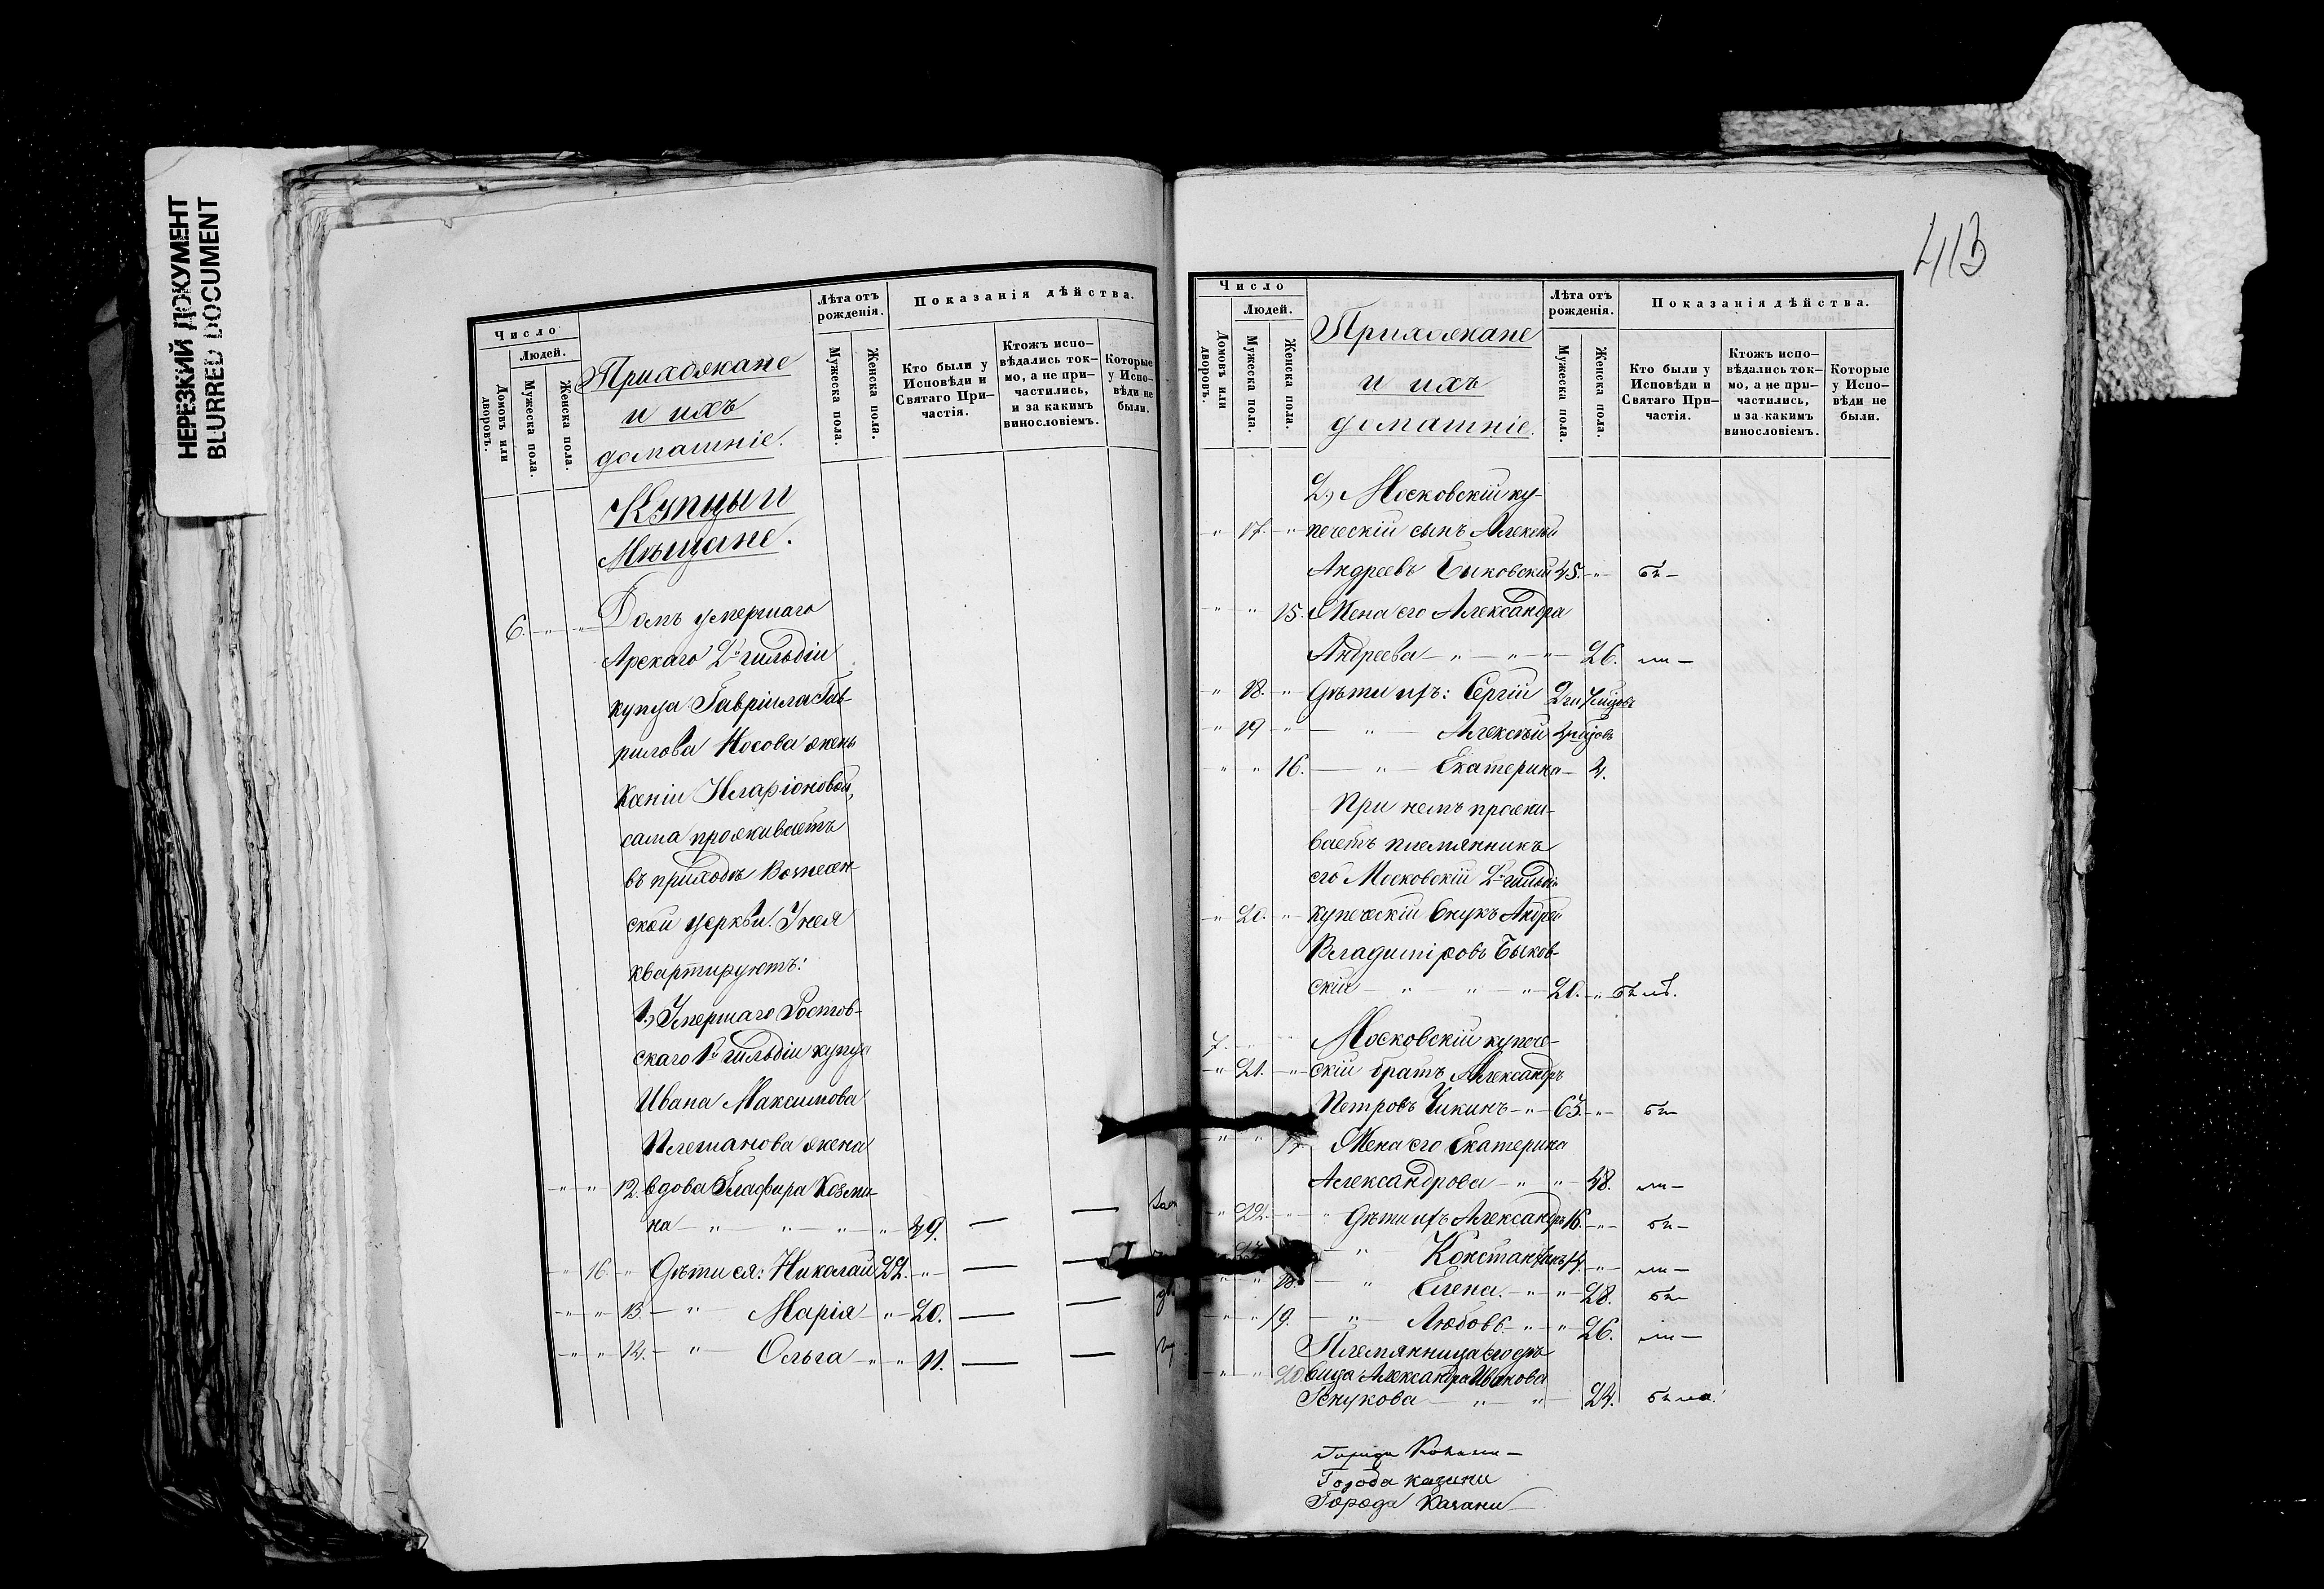 НЕРЕЗКИЙ ДОКУМЕНТ
BLURRED DOCUMENT
Число
Людей.
Домовъ или дворовъ.
Мужеска пола.
Женска пола.
Прихожане
и ихъ
домашніе.
Лѣта отъ рожденія.
Мужеска пола.
Женска пола.
Показанія дѣйства.
Кто были у Исповѣди и Святаго Причастія.
Ктожъ исповѣдались токмо, а не причастились, и за какимъ винословіемъ.
Которые у Исповѣди не были.
Купцы и
Мѣщане.
6. Домъ умершаго
Арскаго 2й гильдіи
купца Гавріила Гав-
рилова Носова жены
Ксеніи Иларіоновой,
сама проживаетъ
въ приходѣ Вознесен-
ской церкви. У нея
квартируютъ:
1, Умершаго Ростов-
скаго 1й гильдіи купца
Ивана Максимова
Плешанова жена
12. вдова Глафира Козми-
на 49.
16. Дѣти ея: Николай 22.
13. Марія 20.
14. Ольга 11.
413
Число
Людей.
Домовъ или дворовъ.
Мужеска пола.
Женска пола.
Прихожане
и ихъ
домашніе.
Лѣта отъ рожденія.
Мужеска пола.
Женска пола.
Показанія дѣйства.
Кто были у Исповѣди и Святаго Причастія.
Ктожъ исповѣдались токмо, а не причастились, и за какимъ винословіемъ.
Которые у Исповѣди не были.
2, Московскій ку-
17. печескій сынъ Алексѣй
Андреевъ Быковскій 45.
15. Жена его Александра
Андреева 26.
18. Дѣти ихъ: Сергій
19 Алексѣй
16. Екатерина 4.
При немъ прожи-
ваетъ племянникъ
его Московскій 2й гильдіи
20. купеческій внукъ Андрей
Владиміровъ Быков-
скій 20.
7. Московскій купече-
21. скій братъ Александръ
Петровъ Чикинъ 63.
17. Жена его Екатерина
Александрова 48.
22. Дѣти ихъ Александръ 16.
Константинъ 14.
18. Елена 28.
19. Любовь 26.
Племянница его дѣ-
20. вица Александра Иванова
24.
Города Казани
Города казани
Города Казани